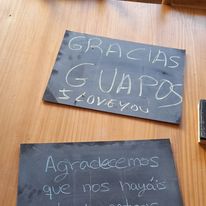 GRACIAS
GUAPOS
I LOVE YOU
Agradecemos
que nos hayáis